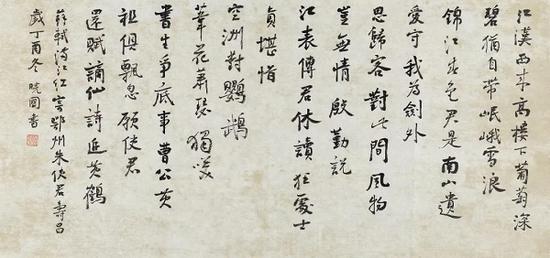 江漢西来高樓下葡萄深
碧猶自带岷峨雪浪
錦江春色君是南山遺
愛守我为劍外
思歸客對此間風物
豈無情殷勤説
江表傳君休讀狂處士
真堪惜
空洲對鸚鵡
葦花蕭瑟獨笑
書生爭底事曹公黄
祖俱飄忽願使君
還賦謫仙詩追黄鶴
蘇軾满江红寄鄂州朱使君壽昌
歲丁酉冬晓國書